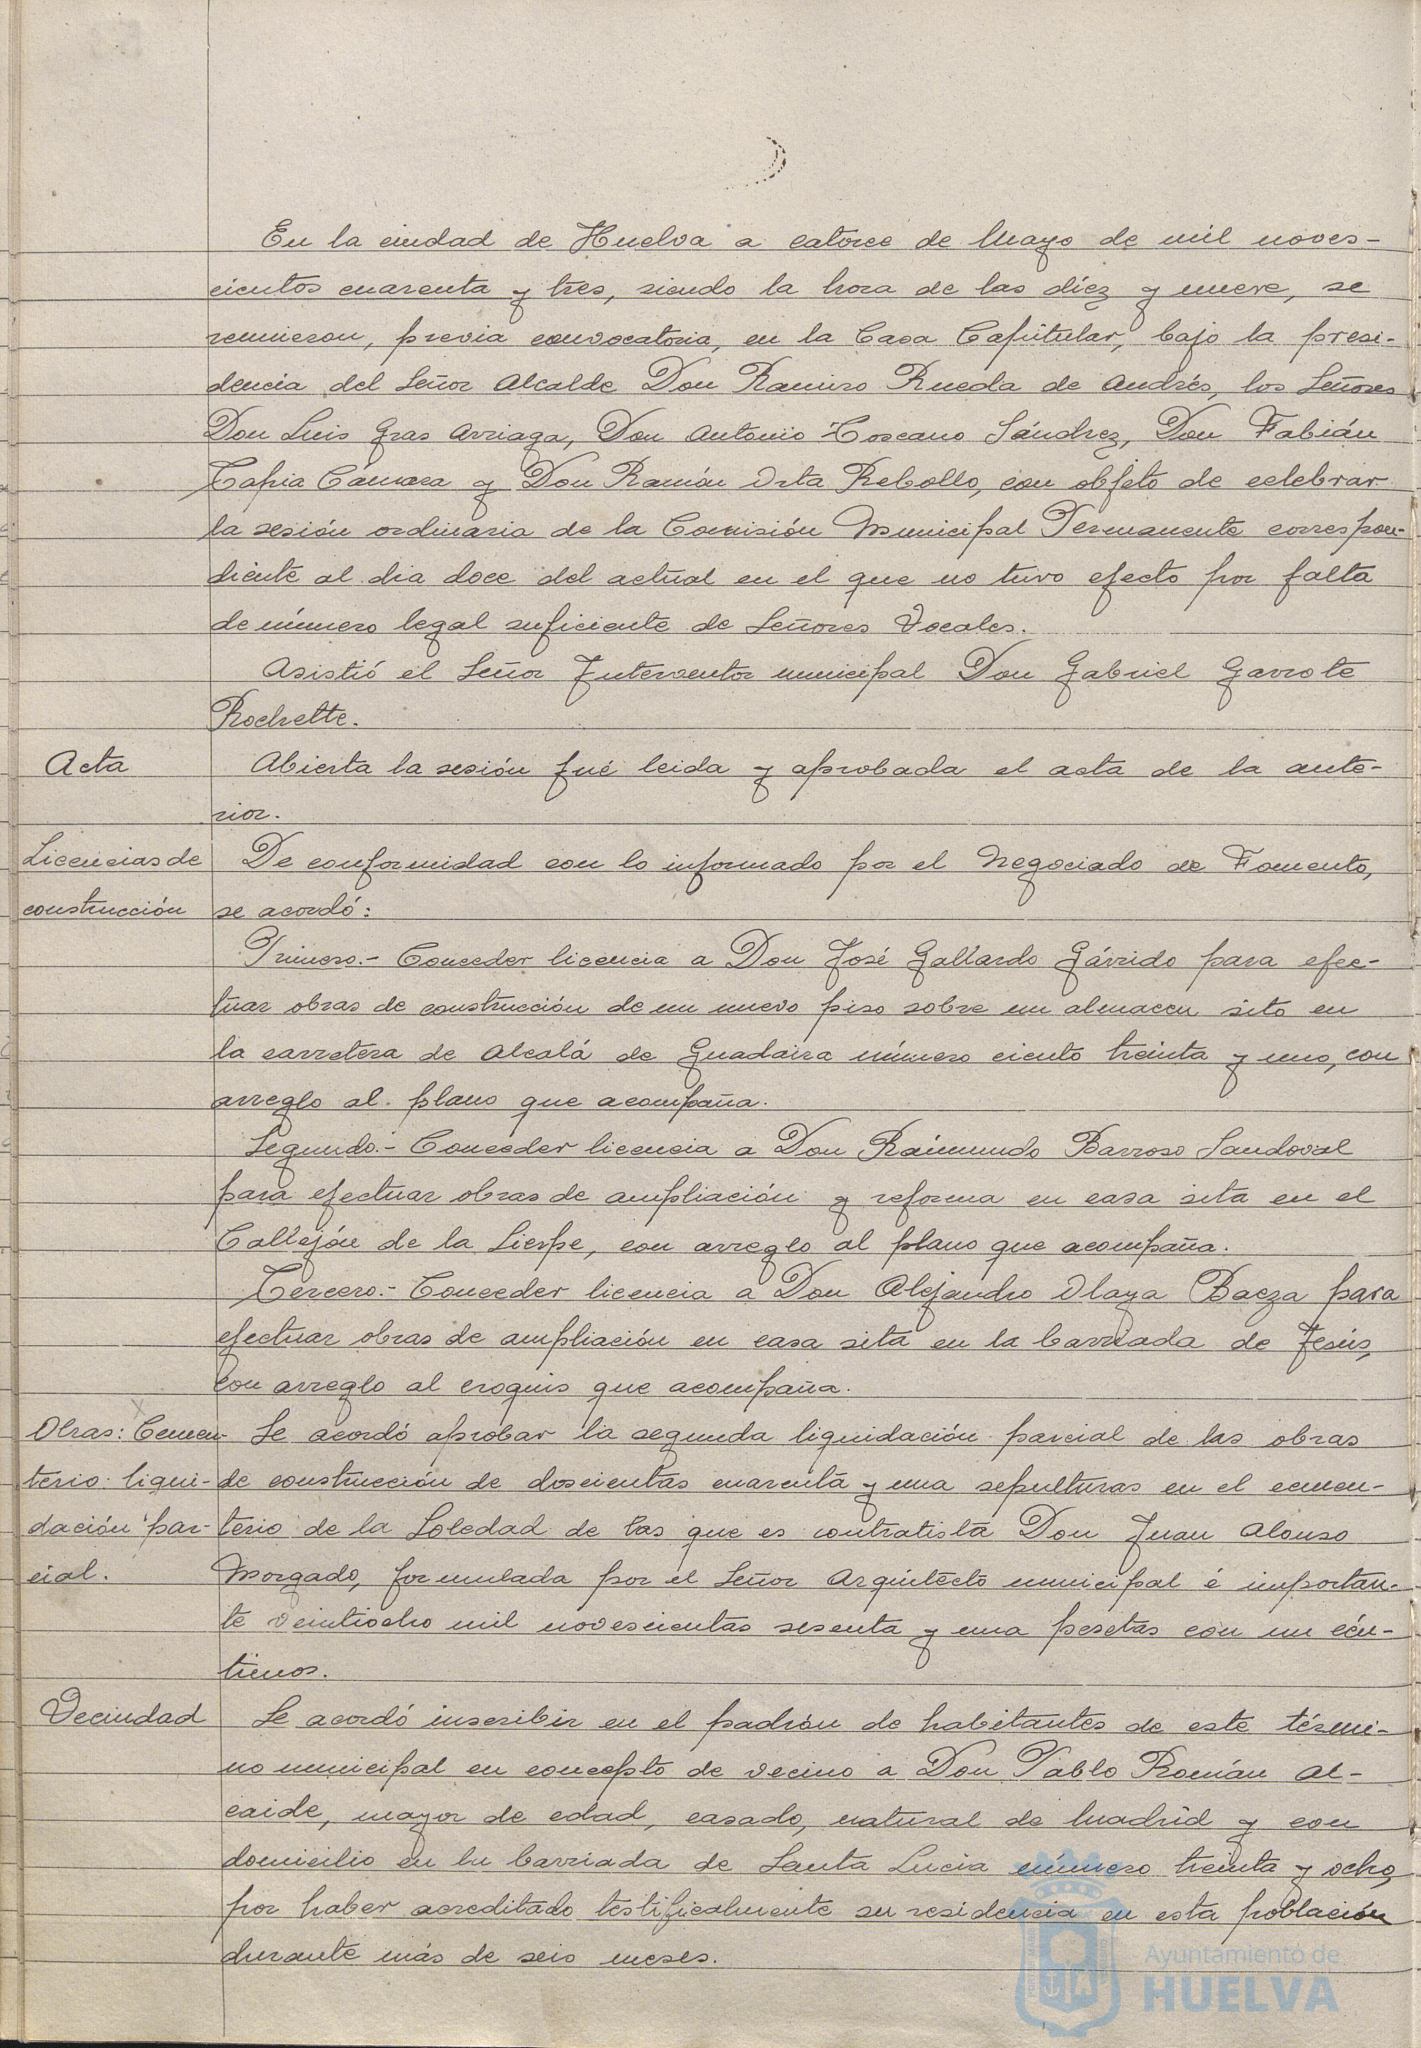 En la ciudad de Huelva a catorce de Mayo de mil noves-
cientos cuarenta y tres, siendo la hora de las diez y nueve, se
reunieron, previa convocatoria, en la Casa Capitular, bajo la presi-
dencia del Señor Alcalde Don Ramiro Rueda de Andrés, los Señores
Don Luis Gras Arriaga, Don Antonio Toscano Sánchez, Don Fabián
Tapia Cámara y Don Ramón Orta Rebollo, con objeto de celebrar
la sesión ordinaria de la Comisión Municipal Permanente correspon-
diente al dia doce del actual en el que no tuvo efecto por falta
de número legal suficiente de Señores Vocales.
Asistió el Señor Interventor municipal Don Gabriel Garrote
Rochette.
Acta
Abierta la sesión fué leida y aprobada el acta de la ante-
rior.
Licencias de
construcción
De conformidad con lo informado por el Negociado de Fomento,
se acordó:
Primero.- Conceder licencia a Don José Gallardo Gárrido para efec-
tuar obras de construcción de un nuevo piso sobre un almacen sito en
la carretera de Alcalá de Guadaira número ciento treinta y uno, con
arreglo al plano que acompaña.
Segundo.- Conceder licencia a Don Raimundo Barroso Sandoval
para efectuar obras de ampliación y reforma en casa sita en el
Callejón de la Lierpe, con arreglo al plano que acompaña.
Tercero.- Conceder licencia a Don Alejandro Olaya Baeza para
efectuar obras de ampliación en casa sita en la barriada de Jesús,
con arreglo al croquis que acompaña.
Obras: Cemen-
terio: liqui-
dación par-
cial.
Se acordó aprobar la segunda liquidación parcial de las obras
de construcción de doscientas cuarenta y una sepulturas en el cemen-
terio de la Soledad de las que es contratista Don Juan Alonso
Morgado, formulada por el Señor Arquitecto municipal é importan-
te veintiocho mil novescientas sesenta y una pesetas con un cén-
timos.
Vecindad
Se acordó inscribir en el padrón de habitantes de este térmi-
no municipal en concepto de vecino a Don Pablo Román Al-
caide, mayor de edad, casado, natural de Madrid y con
domicilio en la barriada de Santa Lucia número treinta y ocho,
por haber acreditado testificalmente su residencia en esta población
durante más de seis meses.
Ayuntamiento de
HUELVA